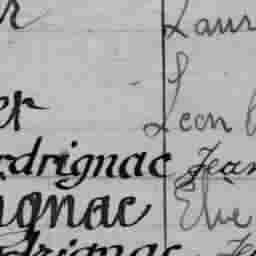 r Laur
er Leon
drignac Jean
ignac Elie
drignac Je